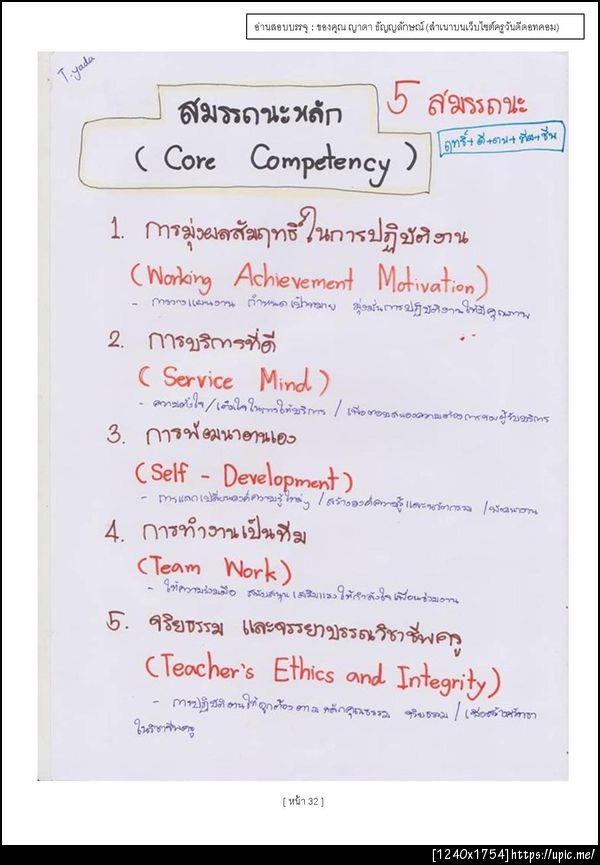 อ่านสอบบรรจุ : ของคุณ ญาดา ธัญญลักษณ์ (สำเนาบนเว็บไซต์ครูวันดีดอทคอม)
T.yada
สมรรถนะหลัก
5 สมรรถนะ
(Core Competency)
ฤทธิ์+ดี+ตน+ทีม+ชีพ
1. การมุ่งผลสัมฤทธิ์ในการปฏิบัติงาน
(Working Achievement Motivation)
- การวางแผนงาน กำหนดเป้าหมาย มุ่งมั่นการปฏิบัติงานให้มีคุณภาพ
2. การบริการที่ดี
(Service Mind)
- ความตั้งใจ/เต็มใจในการให้บริการ / เพื่อตอบสนองความต้องการของผู้รับบริการ
3. การพัฒนาตนเอง
(Self - Development)
- การแลกเปลี่ยนองค์ความรู้ใหม่ๆ / สร้างองค์ความรู้และนวัตกรรม / พัฒนางาน
4. การทำงานเป็นทีม
(Team Work)
- ให้ความร่วมมือ สนับสนุน เสริมแรง ให้กำลังใจเพื่อนร่วมงาน
5. จริยธรรม และจรรยาบรรณวิชาชีพครู
(Teacher's Ethics and Integrity)
- การปฏิบัติตนให้ถูกต้องตาม หลักคุณธรรม จริยธรรม / เพื่อสร้างศรัทธา
ในวิชาชีพครู
[ หน้า 32 ]
[1240x1754]https://upic.me/